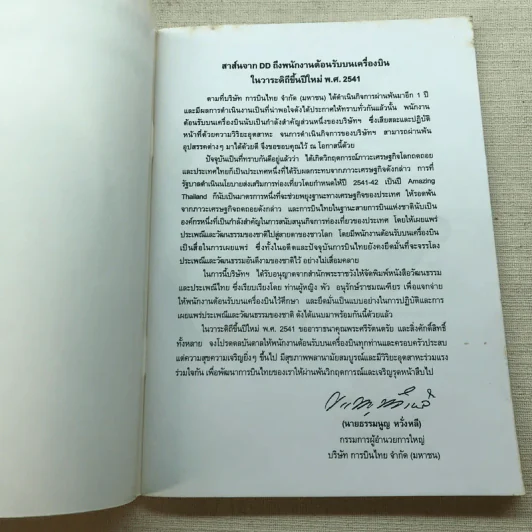 สาส์นจาก DD ถึงพนักงานต้อนรับบนเครื่องบิน
ในวาระดิถีขึ้นปีใหม่ พ.ศ. 2541
ตามที่บริษัท การบินไทย จำกัด (มหาชน) ได้ดำเนินกิจการผ่านพ้นมาอีก 1 ปี
และมีผลการดำเนินงานเป็นที่น่าพอใจดังได้ประกาศให้ทราบทั่วกันแล้วนั้น พนักงาน
ต้อนรับบนเครื่องบินนับเป็นกำลังสำคัญส่วนหนึ่งของบริษัทฯ ซึ่งเสียสละและปฏิบัติ
หน้าที่ด้วยความวิริยะอุตสาหะ จนการดำเนินกิจการของบริษัทฯ สามารถผ่านพ้น
อุปสรรคต่างๆ มาได้ด้วยดี จึงขอขอบคุณไว้ ณ โอกาสนี้ด้วย
ปัจจุบันเป็นที่ทราบกันดีอยู่แล้วว่า ได้เกิดวิกฤตการณ์ภาวะเศรษฐกิจโลกถดถอย
และประเทศไทยก็เป็นประเทศหนึ่งที่ได้รับผลกระทบจากภาวะเศรษฐกิจดังกล่าว การที่
รัฐบาลดำเนินนโยบายส่งเสริมการท่องเที่ยวโดยกำหนดให้ปี 2541-42 เป็นปี Amazing
Thailand ก็นับเป็นมาตรการหนึ่งที่จะช่วยพยุงฐานะทางเศรษฐกิจของประเทศ ให้รอดพ้น
จากภาวะเศรษฐกิจถดถอยดังกล่าว และการบินไทยในฐานะสายการบินแห่งชาตินับเป็น
องค์กรหนึ่งที่เป็นกำลังสำคัญในการสนับสนุนกิจการท่องเที่ยวของประเทศ โดยให้เผยแพร่
ประเพณีและวัฒนธรรมของชาติไปสู่สายตาของชาวโลก โดยมีพนักงานต้อนรับบนเครื่องบิน
เป็นสื่อในการเผยแพร่ ซึ่งทั้งในอดีตและปัจจุบันการบินไทยยังคงยึดมั่นที่จะจรรโลง
ประเพณีและวัฒนธรรมอันดีงามของชาติไว้ อย่างไม่เสื่อมคลาย
ในการนี้บริษัทฯ ได้รับอนุญาตจากสำนักพระราชวังให้จัดพิมพ์หนังสือวัฒนธรรม
และประเพณีไทย ซึ่งเรียบเรียงโดย ท่านผู้หญิง พัว อนุรักษ์ราชมณเฑียร เพื่อแจกจ่าย
ให้พนักงานต้อนรับบนเครื่องบินไว้ศึกษา และยึดมั่นเป็นแบบอย่างในการปฏิบัติและการ
เผยแพร่ประเพณีและวัฒนธรรมของชาติ ดังได้แนบมาพร้อมกันนี้ด้วยแล้ว
ในวาระดิถีขึ้นปีใหม่ พ.ศ. 2541 ขออาราธนาคุณพระศรีรัตนตรัย และสิ่งศักดิ์สิทธิ์
ทั้งหลาย จงโปรดดลบันดาลให้พนักงานต้อนรับบนเครื่องบินทุกท่านและครอบครัวประสบ
แต่ความสุขความเจริญยิ่งๆ ขึ้นไป มีสุขภาพพลานามัยสมบูรณ์และมีวิริยะอุตสาหะร่วมแรง
ร่วมใจกัน เพื่อพัฒนาการบินไทยของเราให้ผ่านพ้นวิกฤตการณ์และเจริญรุดหน้าสืบไป
(นายธรรมนูญ หวั่งหลี)
กรรมการผู้อำนวยการใหญ่
บริษัท การบินไทย จำกัด (มหาชน)